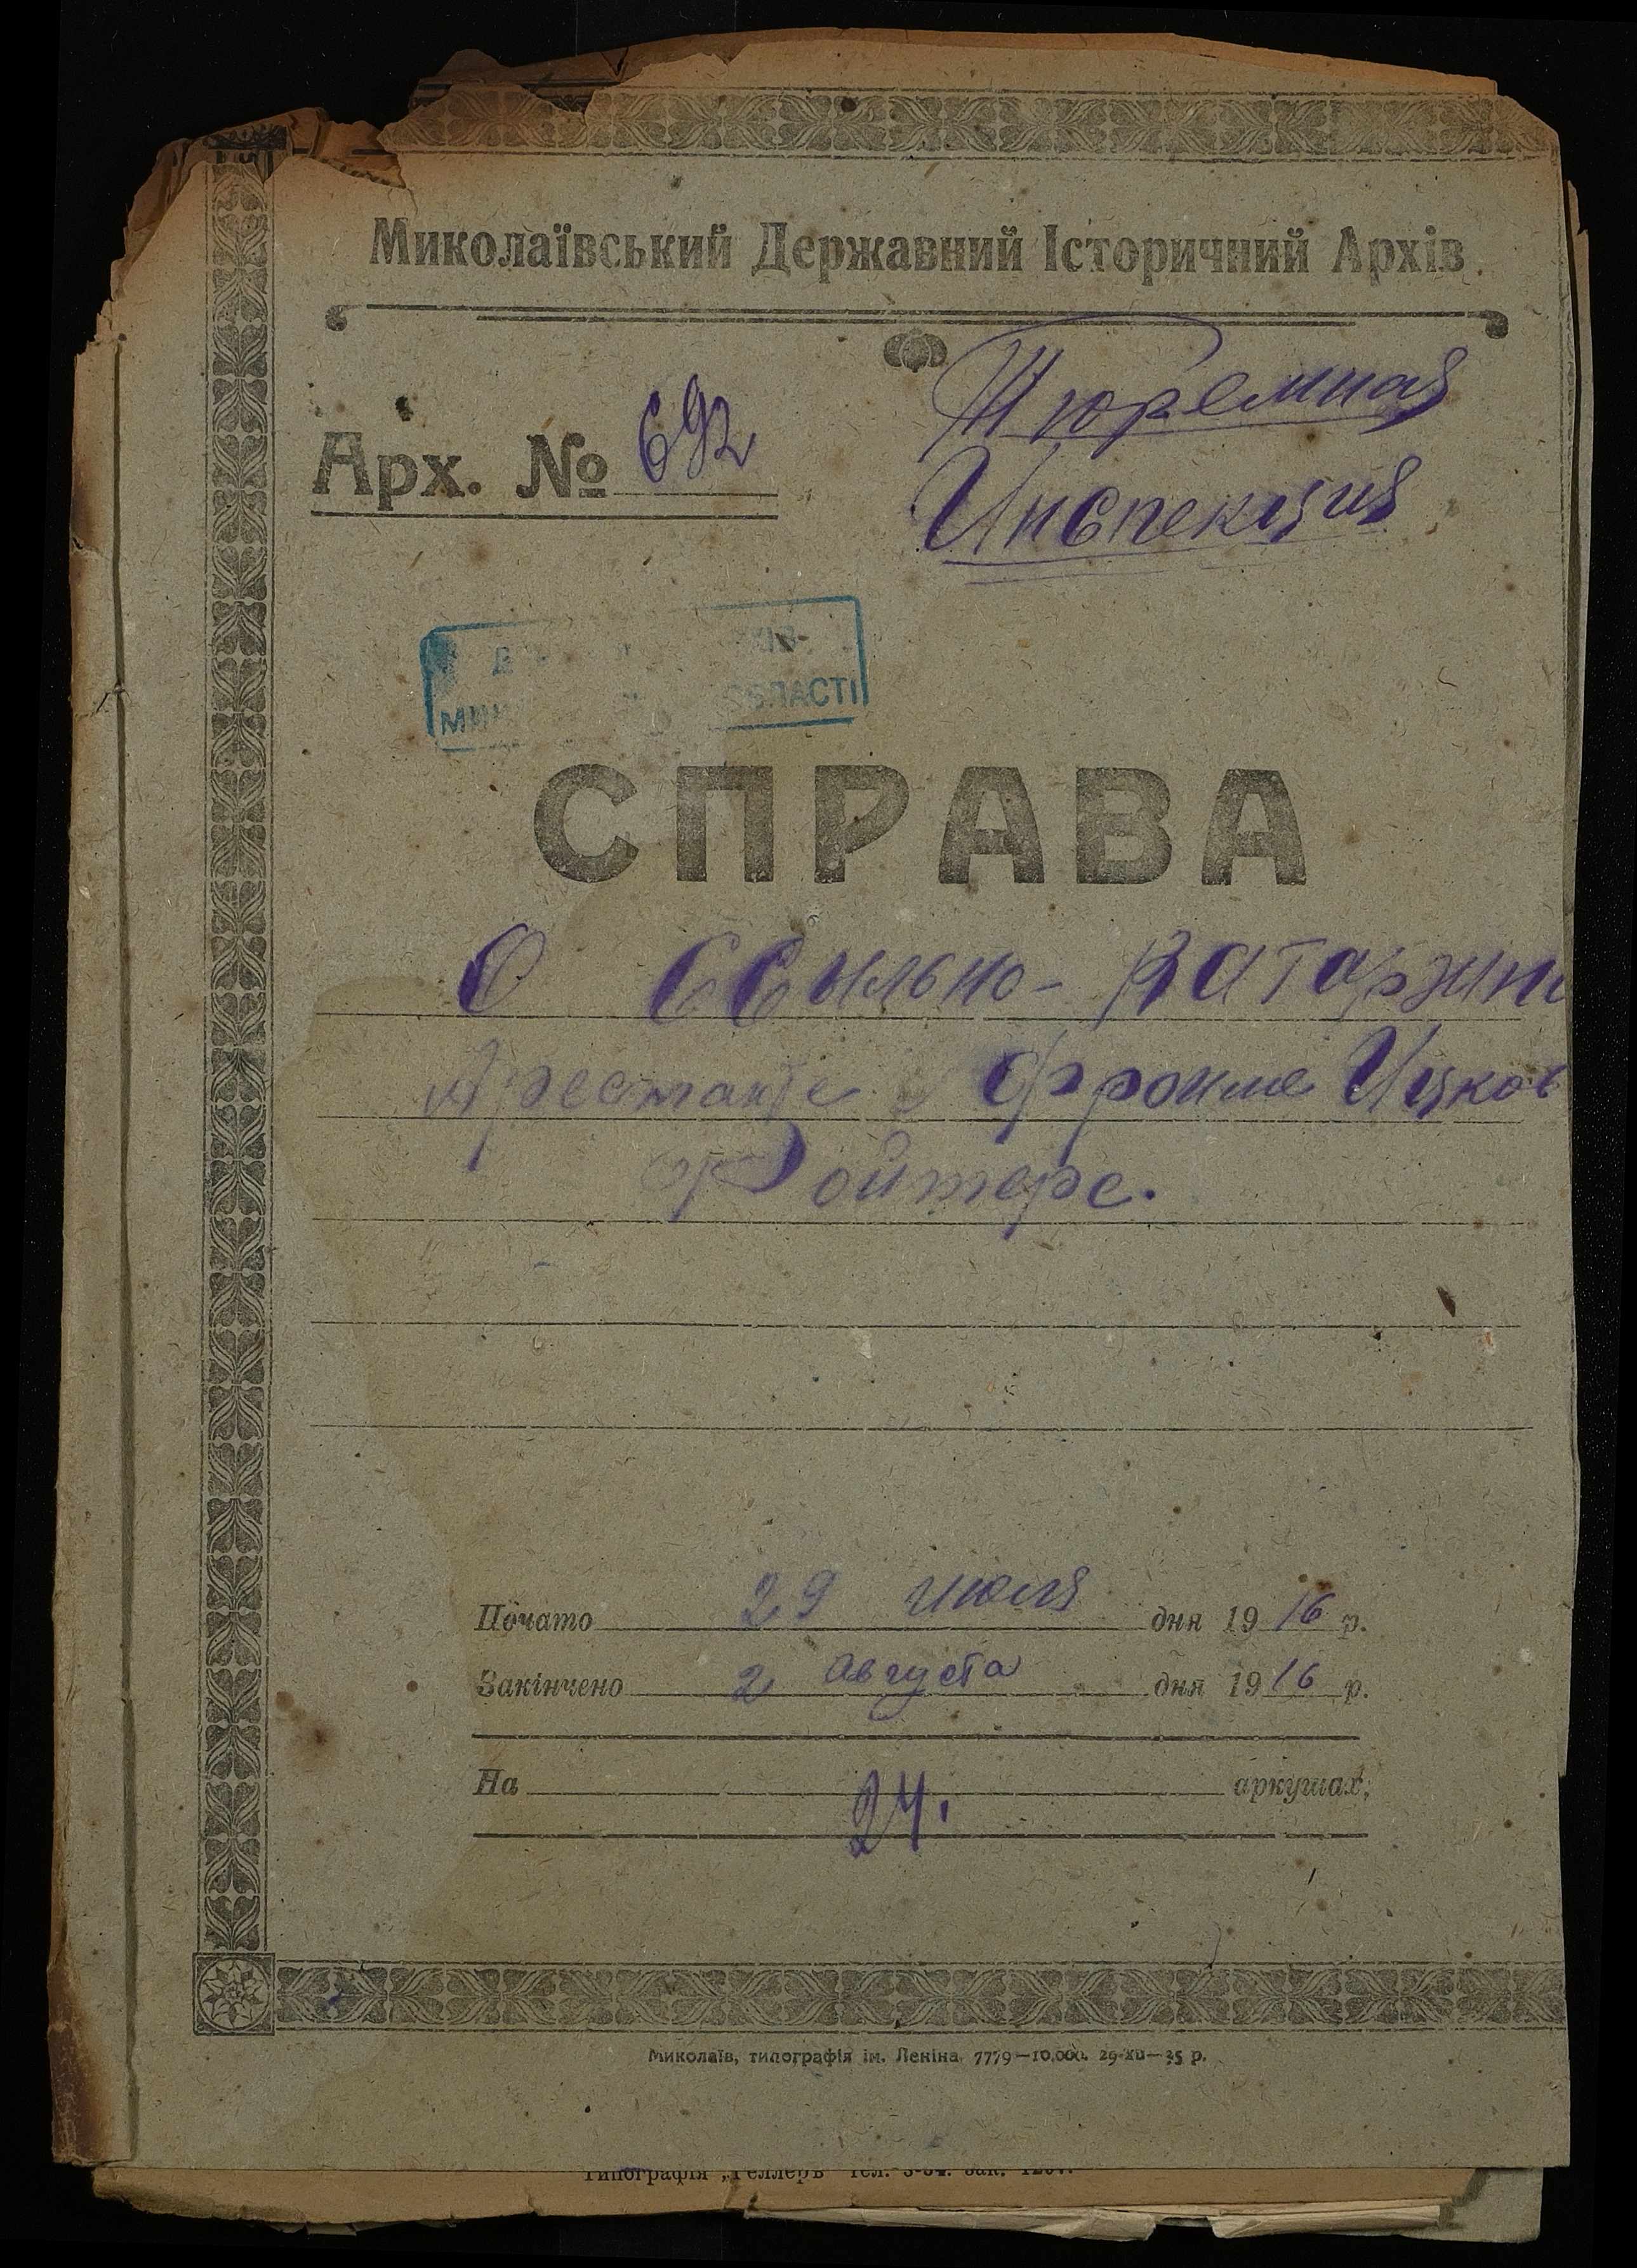 Миколаївський Державний Історичний Архів
Арх. № 692
Тюремная
Инспекция
ОБЛАСТІ
СПРАВА
О Ссыльно-Катаржн
Арестанте Фроиме Ицков
Ройтере.
Почато 29 июля дня 1916 р.
Закінчено 2 августа дня 1916 р.
На 24. аркушах;
Миколаїв, типографія ім. Леніна 7779—10.000. 29-XII—35 р.
Типографія „Геллеръ"